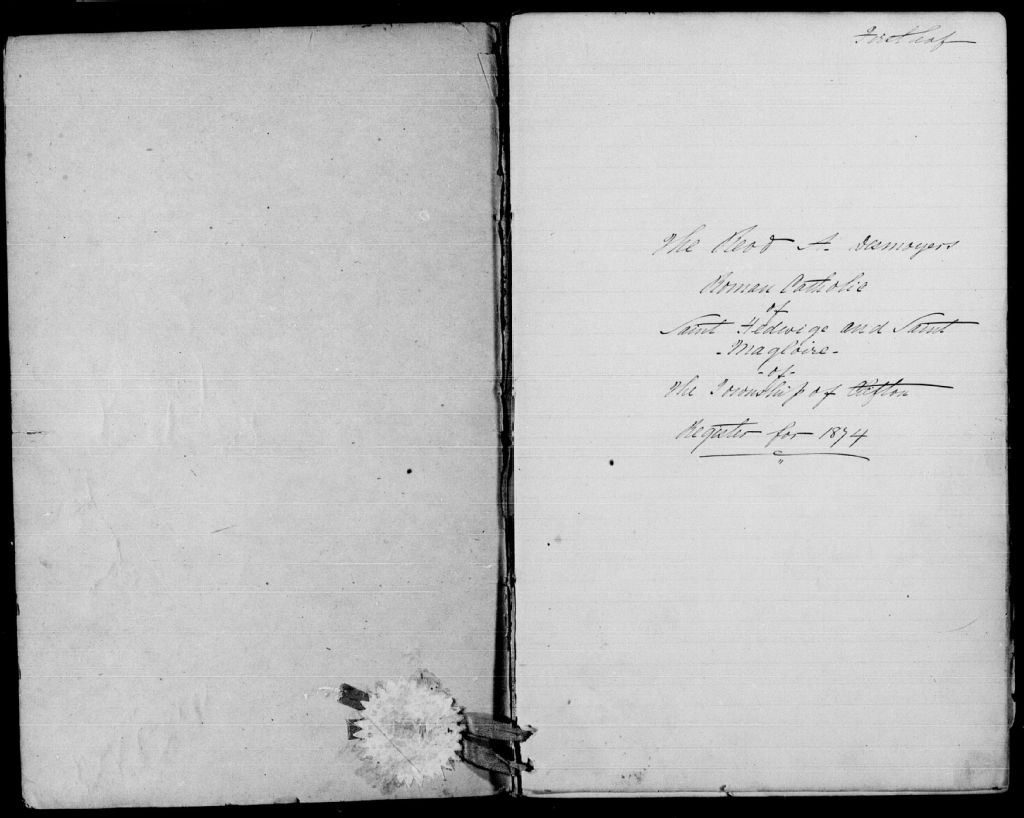 First leaf
The Revd A. Desnoyers
Roman Catholic
of
Saint Hedwige and Saint
- Magloire -
- of -
The Township of Clifton
Register for 1874